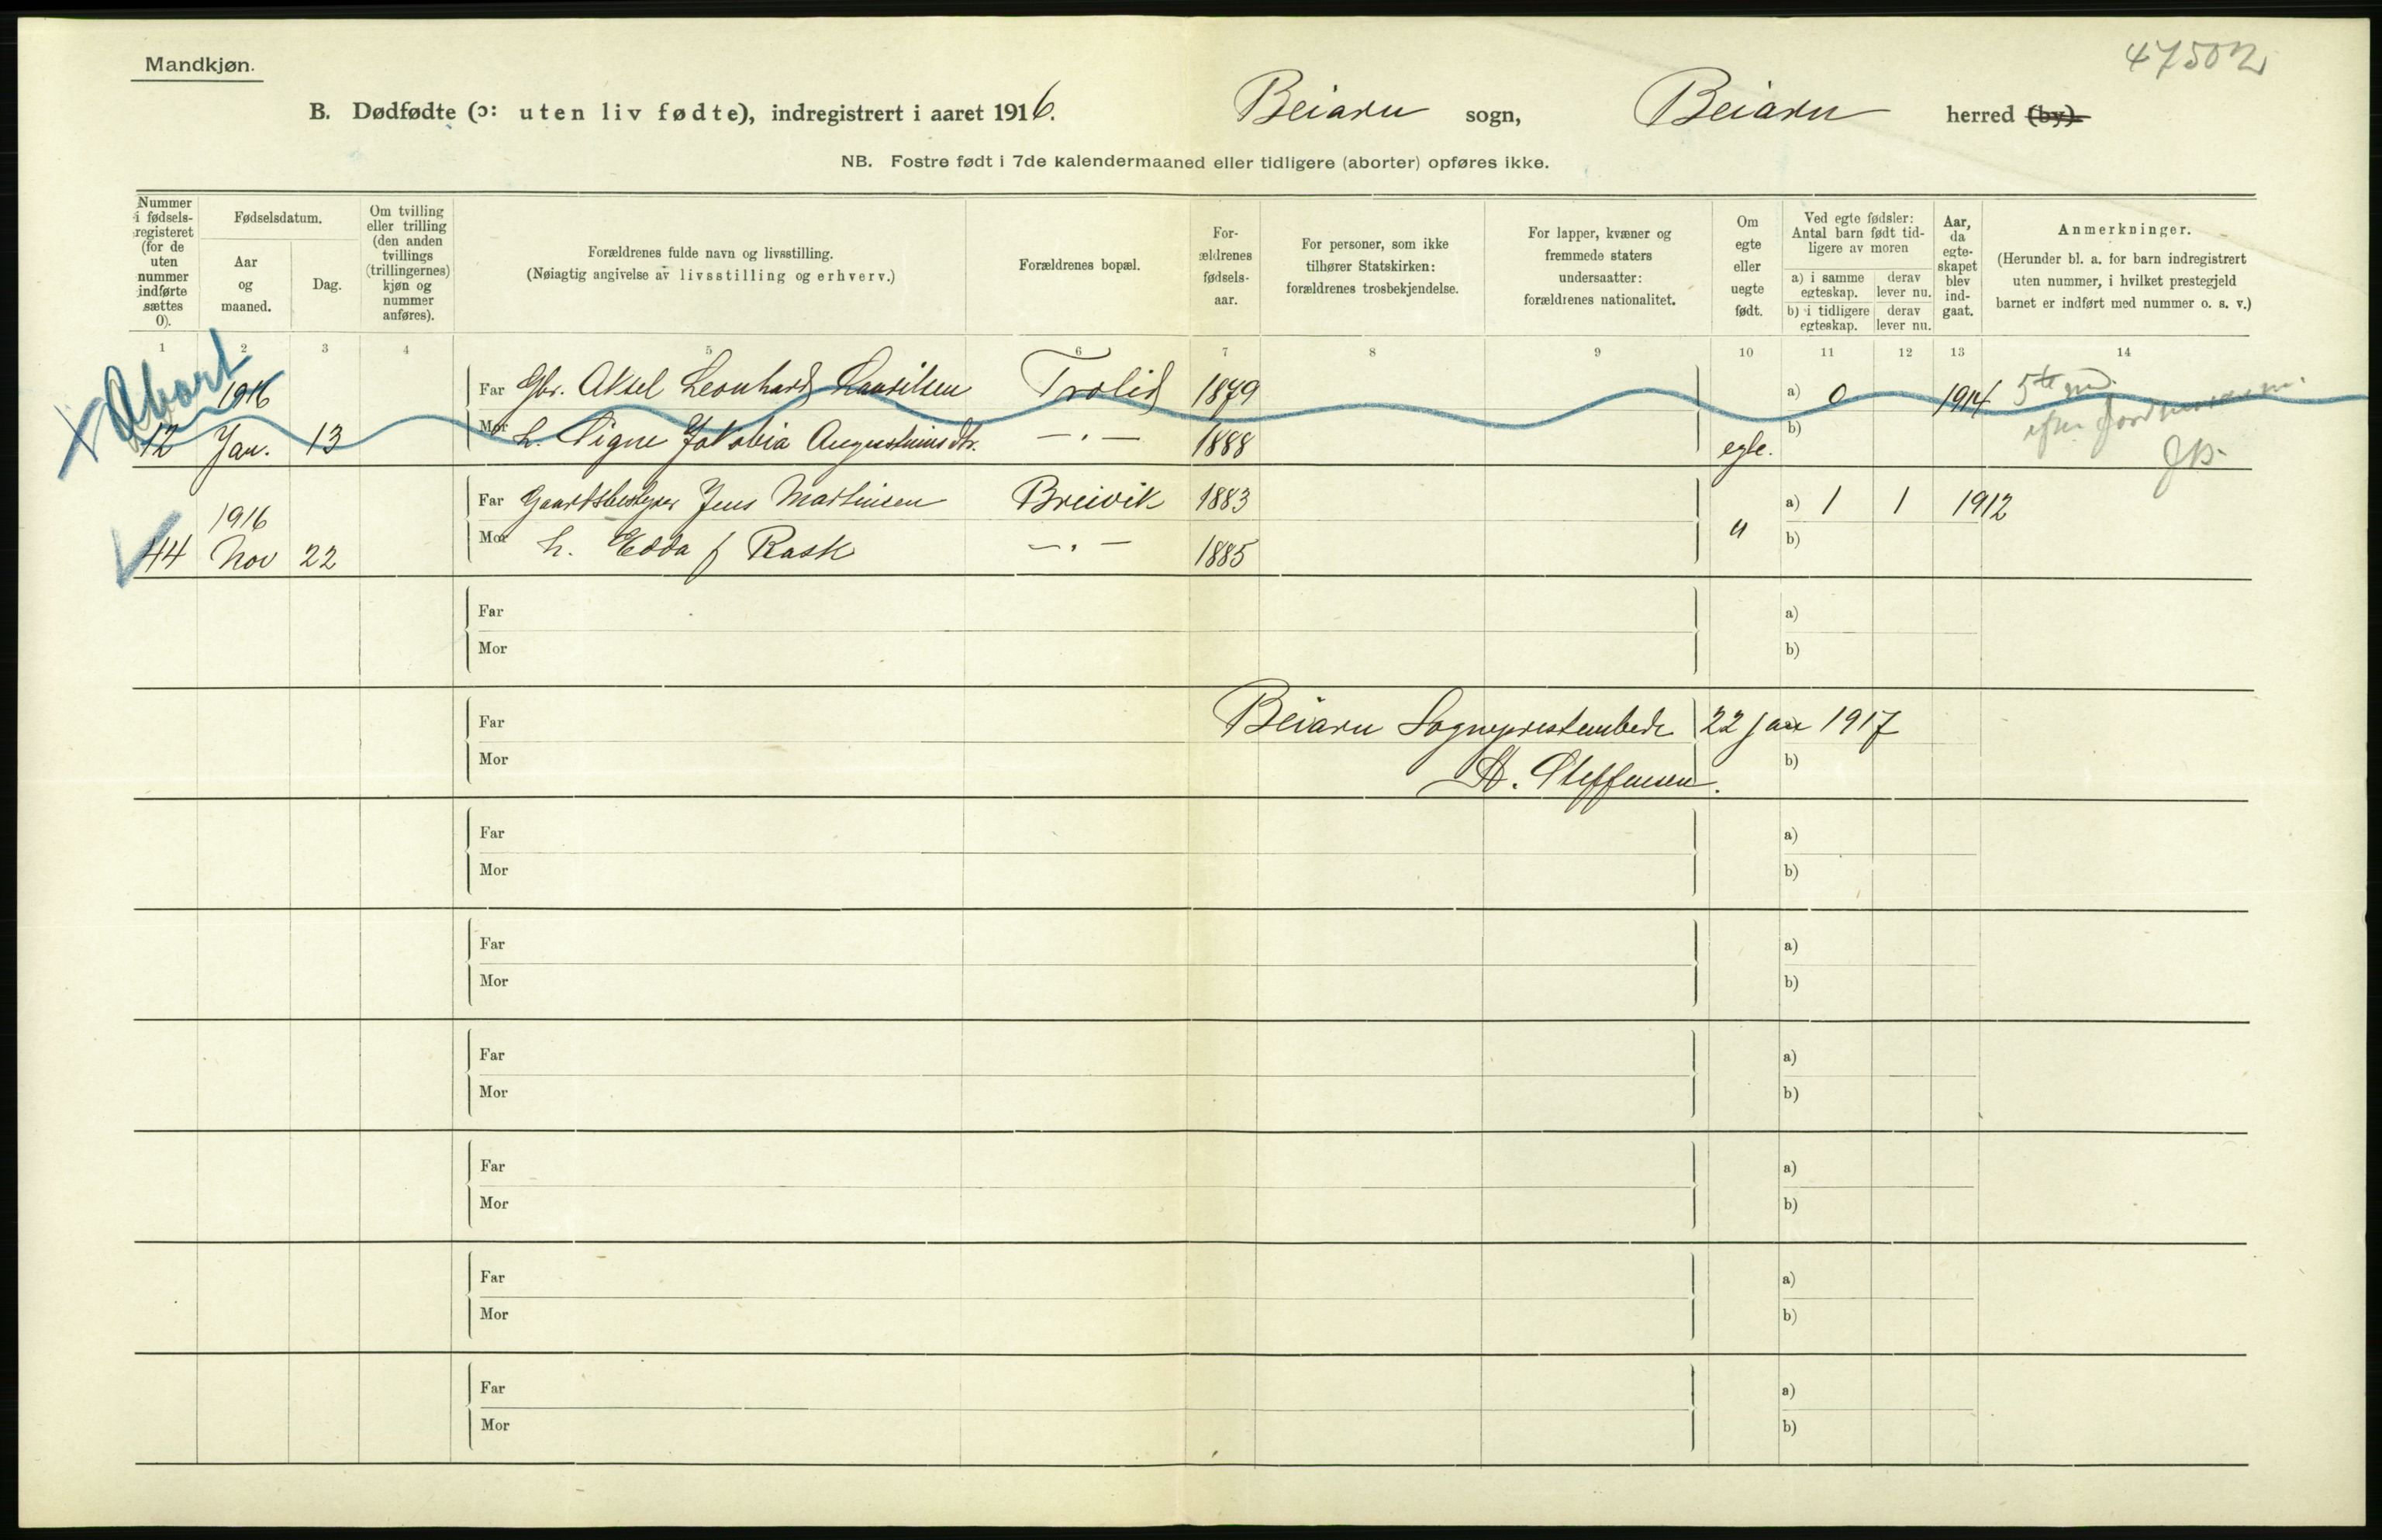 Mandkjøn.
47502
B. Dødfødte (ɔ: uten liv fødte), indregistrert i aaret 1916. Beiarn sogn, Beiarn herred (by).
NB. Fostre født i 7de kalendermaaned eller tidligere (aborter) opføres ikke.
Nummer
i fødsels-
registeret
(for de
uten
nummer
indførte
sættes
0).
Fødselsdatum.
Aar
og
maaned.
Dag.
Om tvilling
eller trilling
(den anden
tvillings
(trillingernes)
kjøn og
nummer
anføres).
Forældrenes fulde navn og livsstilling.
(Nøiagtig angivelse av livsstilling og erhverv.)
Forældrenes bopæl.
For-
ældrenes
fødsels-
aar.
For personer, som ikke
tilhører Statskirken:
forældrenes trosbekjendelse.
For lapper, kvæner og
fremmede staters
undersaatter:
forældrenes nationalitet.
Om
egte
eller
uegte
født.
Ved egte fødsler:
Antal barn født tid-
ligere av moren
a) i samme
egteskap.
derav
lever nu.
b) i tidligere
egteskap.
derav
lever nu.
Aar,
da
egte-
skapet
blev
ind-
gaat.
Anmerkninger.
(Herunder bl. a. for barn indregistrert
uten nummer, i hvilket prestegjeld
barnet er indført med nummer o. s. v.)
1 2 3 4 5 6 7 8 9 10 11 12 13 14
Abort
1916 Far Gbr. Aksel Leonhard Laurilsen Trolid 1879 a) 0 1914 5te md.
12 Jan. 13 Mor h. Signe Jakobia Augustinusdtr. —.— 1888 egte. b) efter
Far Gaardsbestyrer Jens Martinsen Breivik 1883 a) 1 1 1912
1916
44 Nov 22 Mor h. Edda f Rask —.— 1885 " b)
Far a)
Mor b)
Far Beiarn Sogneprestembede 22 jan 1917
Mor A. Steffensen. b)
Far a)
Mor b)
Far a)
Mor b)
Far a)
Mor b)
Far a)
Mor b)
Far a)
Mor b)
Far a)
Mor b)